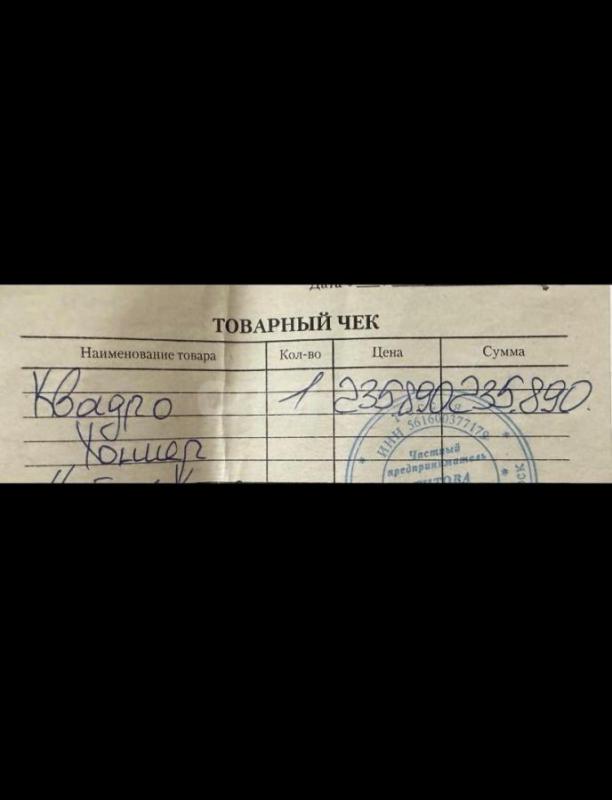 ТОВАРНЫЙ ЧЕК
Наименование товара Кол-во Цена Сумма
Квадро 1 235.890 235.890.
Хоппер
ИНН 561600377179
Частный
предприниматель